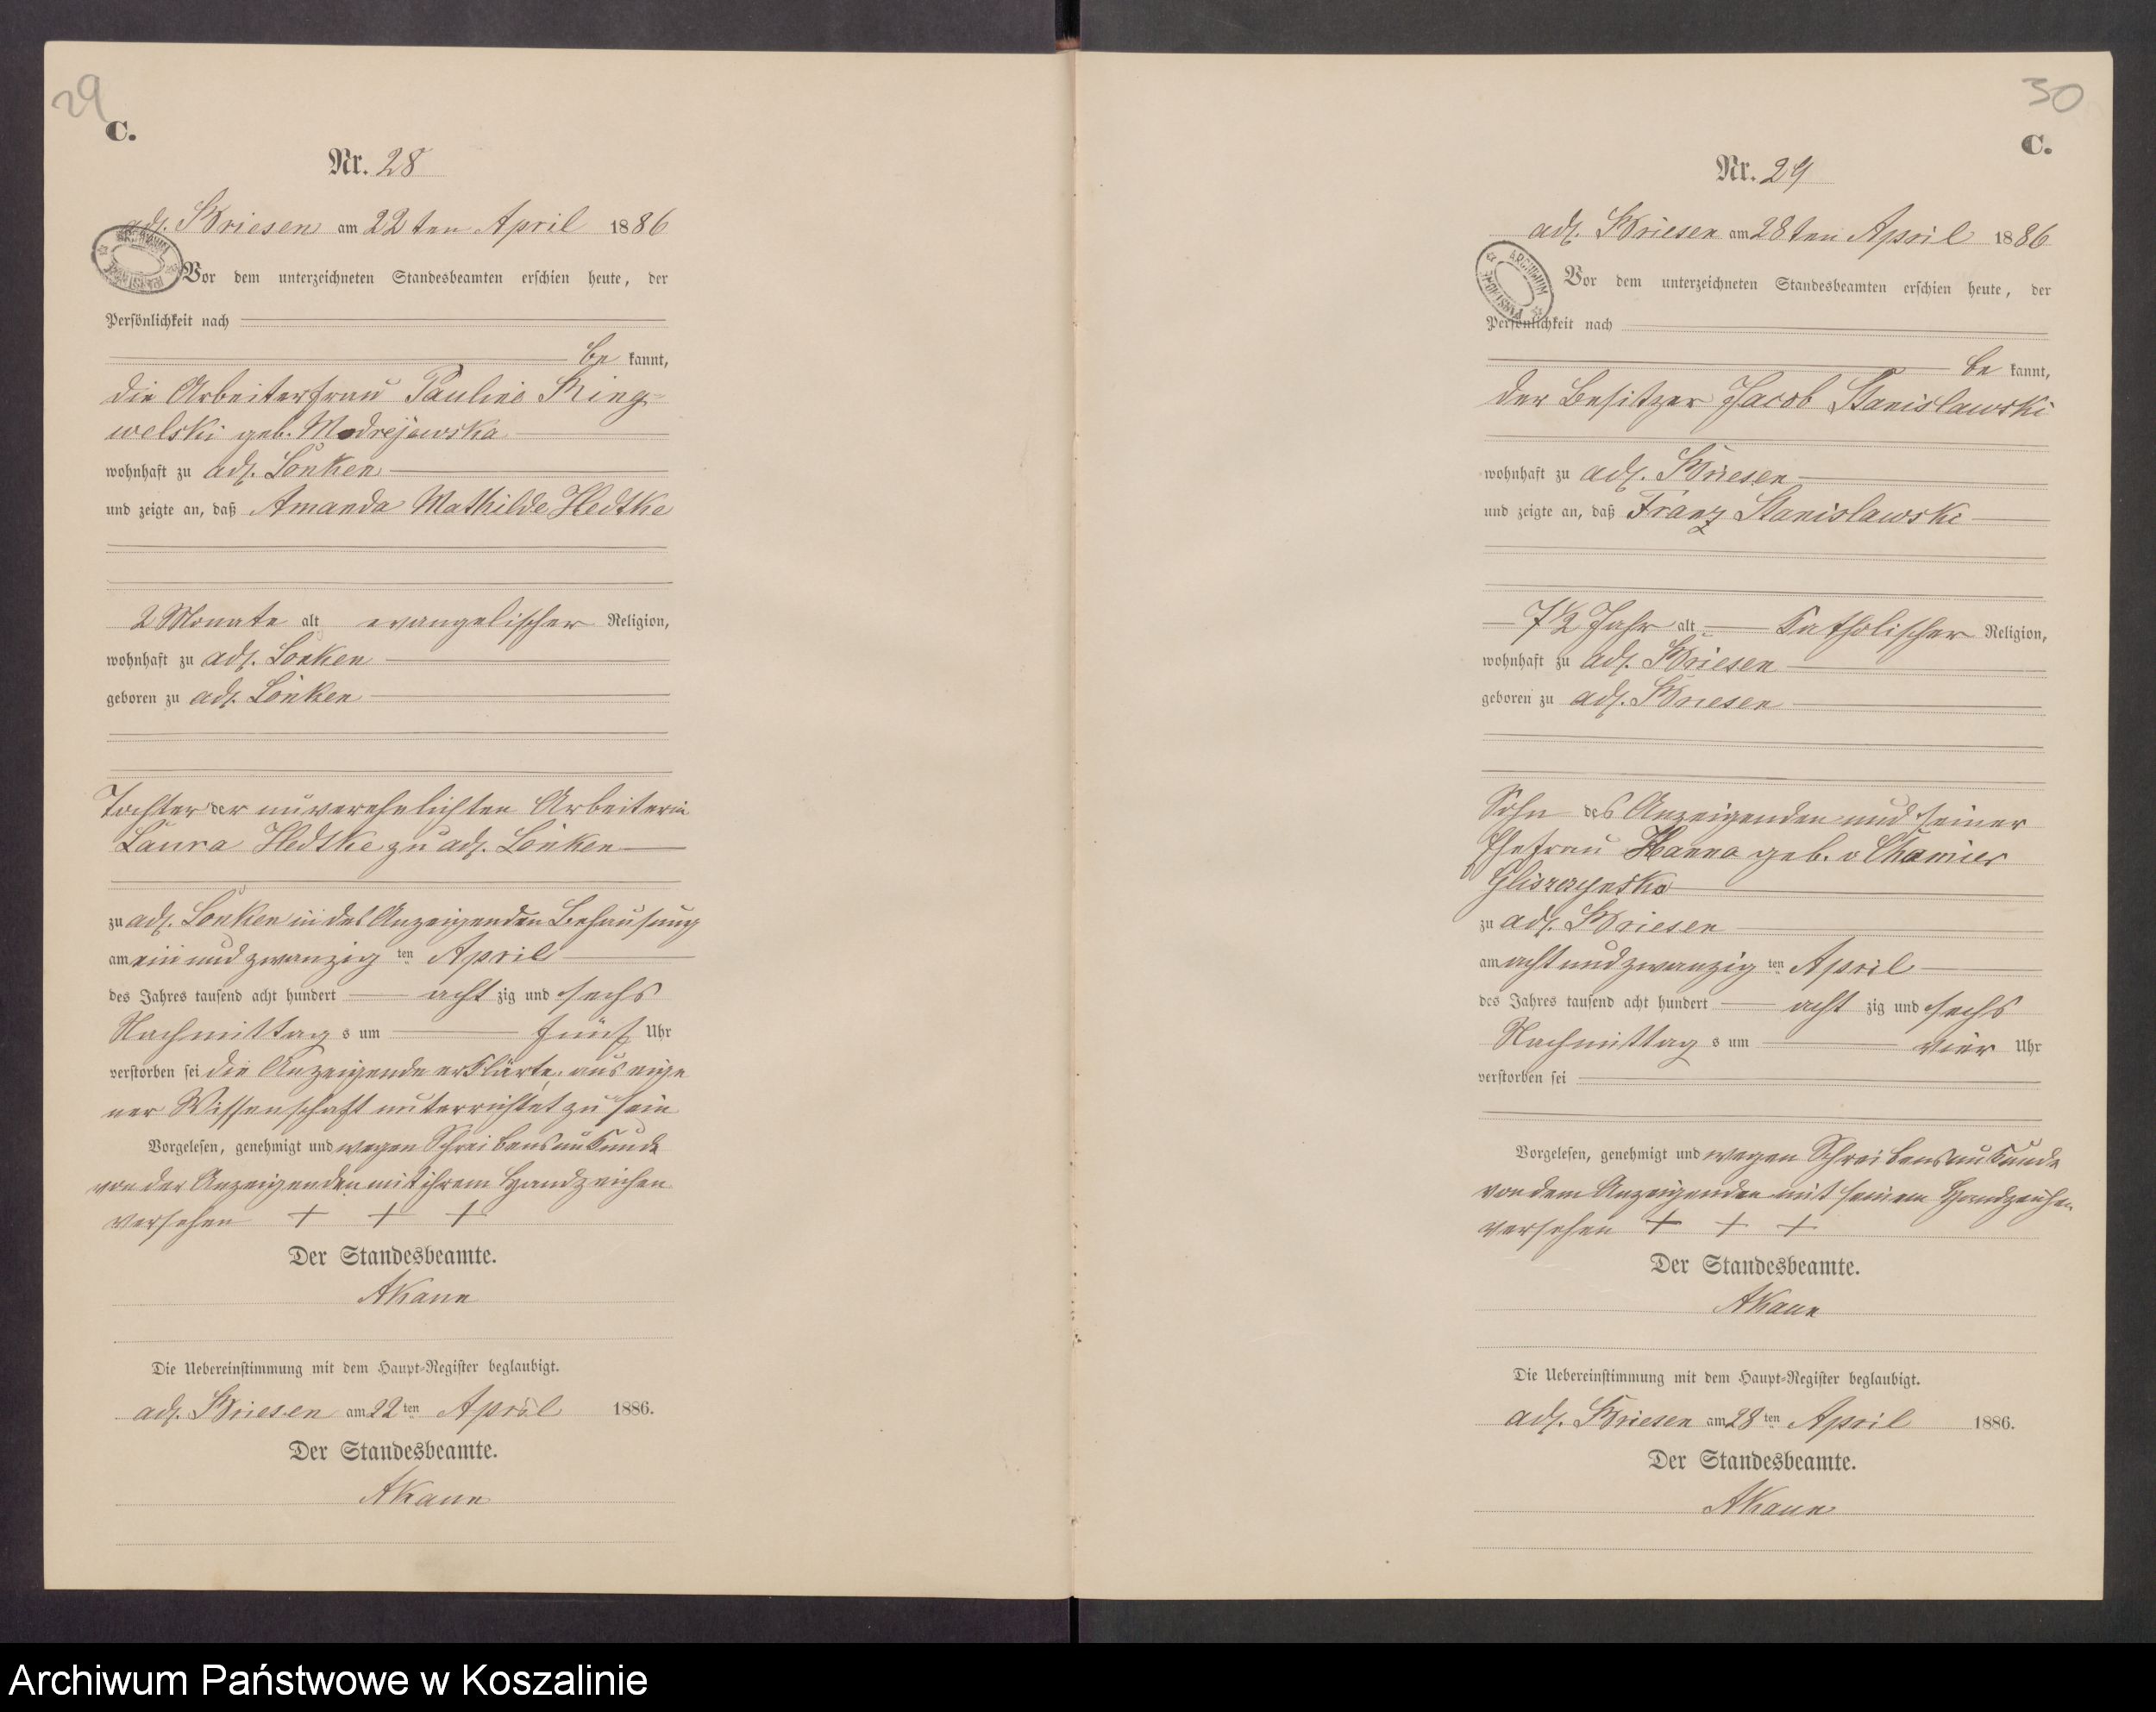 29
C.
Nr. 28
adl. Briesen am 22ten April 1886
ARCHIWUM PAŃSTWOWE
Vor dem unterzeichneten Standesbeamten erschien heute, der
Persönlichkeit nach
be kannt,
die Arbeiterfrau Pauline Ring-
welski geb. Modrejewska
wohnhaft zu adl. Lonken
und zeigte an, daß Amanda Mathilde Hedtke
2 Monate alt evangelischer Religion,
wohnhaft zu adl. Lonken
geboren zu adl. Lonken
Tochter der unverehelichten Arbeiterin
Laura Hedtke zu adl. Lonken
zu adl. Lonken in des Anzeigenden Behausung
am ein und zwanzig ten April
des Jahres tausend acht hundert acht zig und sechs
Nachmittag s um fünf Uhr
verstorben sei die Anzeigende erklärte, aus eige
ner Wissenschaft unterrichtet zu sein
Vorgelesen, genehmigt und wegen Schreibensunkunde
von der Anzeigenden mit ihrem Handzeichen
versehen + + +
Der Standesbeamte.
AKann
Die Uebereinstimmung mit dem Haupt-Register beglaubigt.
adl. Briesen am 22ten April 1886.
Der Standesbeamte.
AKann
30
C.
Nr. 29
adl. Briesen am 28ten April 1886
ARCHIWUM PAŃSTWOWE
Vor dem unterzeichneten Standesbeamten erschien heute, der
Persönlichkeit nach
be kannt,
der Besitzer Jacob Stanislawski
wohnhaft zu adl. Briesen
und zeigte an, daß Franz Stanislawski
7 1/2 Jahr alt Katholischer Religion,
wohnhaft zu adl. Briesen
geboren zu adl. Briesen
Sohn des Anzeigenden und seiner
Ehefrau Hanna geb. v Chamier
Gliszczynska
zu adl. Briesen
am acht und zwanzig ten April
des Jahres tausend acht hundert acht zig und sechs
Nachmittag s um vier Uhr
verstorben sei
Vorgelesen, genehmigt und wegen Schreibensunkunde
von dem Anzeigenden mit seinem Handzeichen
versehen + + +
Der Standesbeamte.
AKann
Die Uebereinstimmung mit dem Haupt-Register beglaubigt.
adl. Briesen am 28ten April 1886.
Der Standesbeamte.
AKann
Archiwum Państwowe w Koszalinie